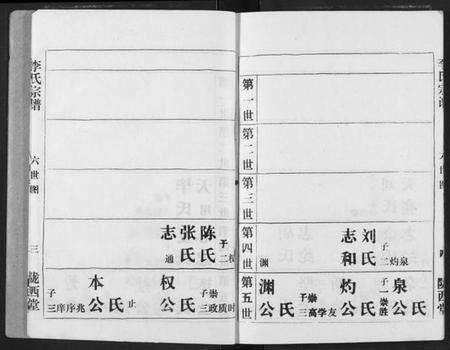 李氏宗谱
六世图
三
陇西堂
陈氏
子二
张氏
志
通
权公
氏
子三
崇
政质时
止
本公
氏
子三
序序兆
李氏宗谱
六世图
陇西堂
第一世
第二世
第三世
第四世
第五世
刘氏
子二
灼泉
志和
渊
泉公
氏
子一
崇胜
灼公
氏
子三
崇
高学友
渊公